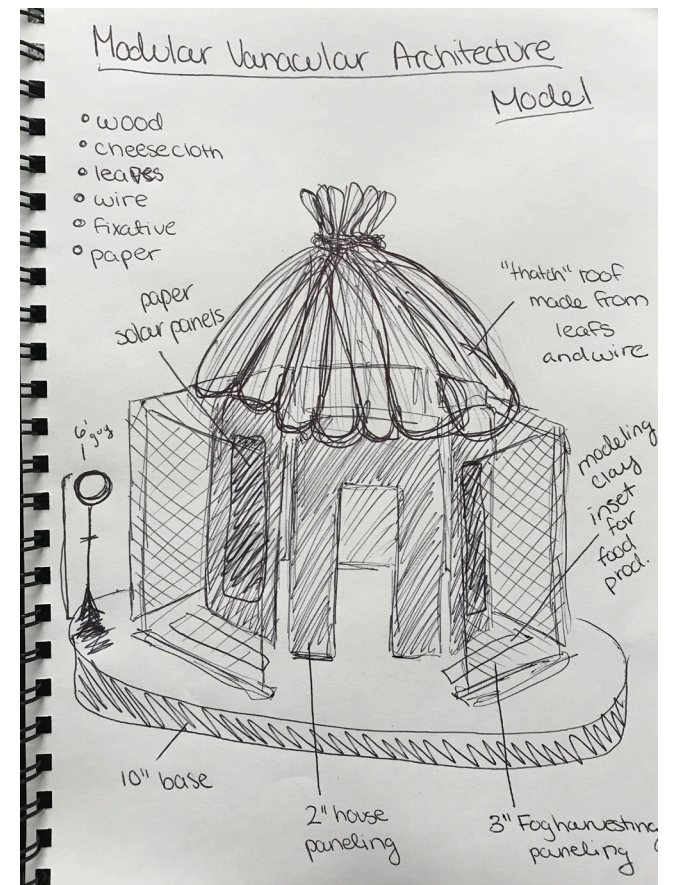 Modular Vanacular Architecture
Model
wood
cheesecloth
leaves
wire
fixative
paper
paper
solar panels
"thatch" roof
made from
leafs
and wire
6'
guy
modeling
clay
inset
for
food
prod.
10" base
2" house
paneling
3" Fogharvesting
paneling